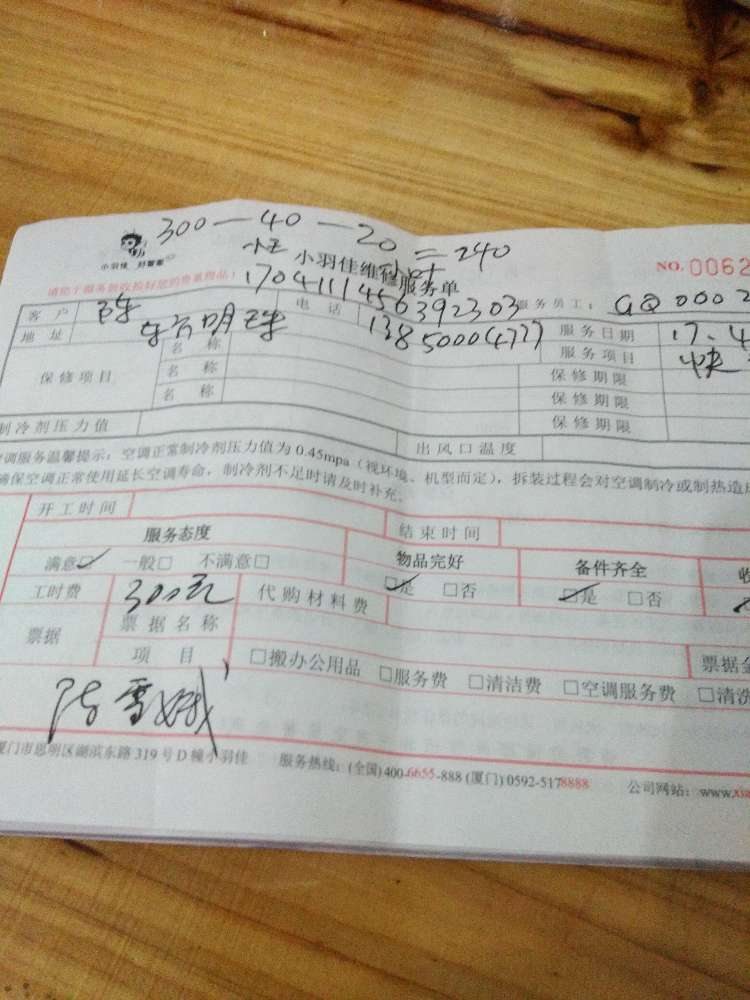 300—40—20=240
小羽佳 好管家
小羽佳维修服务单
NO.0062
请给予服务前收拾好您的贵重物品！
1704111456392303
服务员工：GQ0002
客户 陈 电话 13850004777 服务日期 17.4
地址 东方明珠 服务项目 快
保修项目 名称 保修期限
名称 保修期限
名称 保修期限
制冷剂压力值 出风口温度
空调服务温馨提示：空调正常制冷剂压力值为0.45mpa（视环境、机型而定），拆装过程会对空调制冷或制热造成
确保空调正常使用延长空调寿命，制冷剂不足时请及时补充。
开工时间 结束时间
服务态度 物品完好 备件齐全 收
满意☑ 一般□ 不满意□ ☑是 □否 ☑是 □否
工时费 300元 代购材料费
票据 票据名称 票据金
项目 □搬办公用品 □服务费 □清洁费 □空调服务费 □清洗
陈雪娥
厦门市思明区湖滨东路319号D幢小羽佳 服务热线：(全国)400-6655-888 (厦门)0592-5178888 公司网站：www.xia